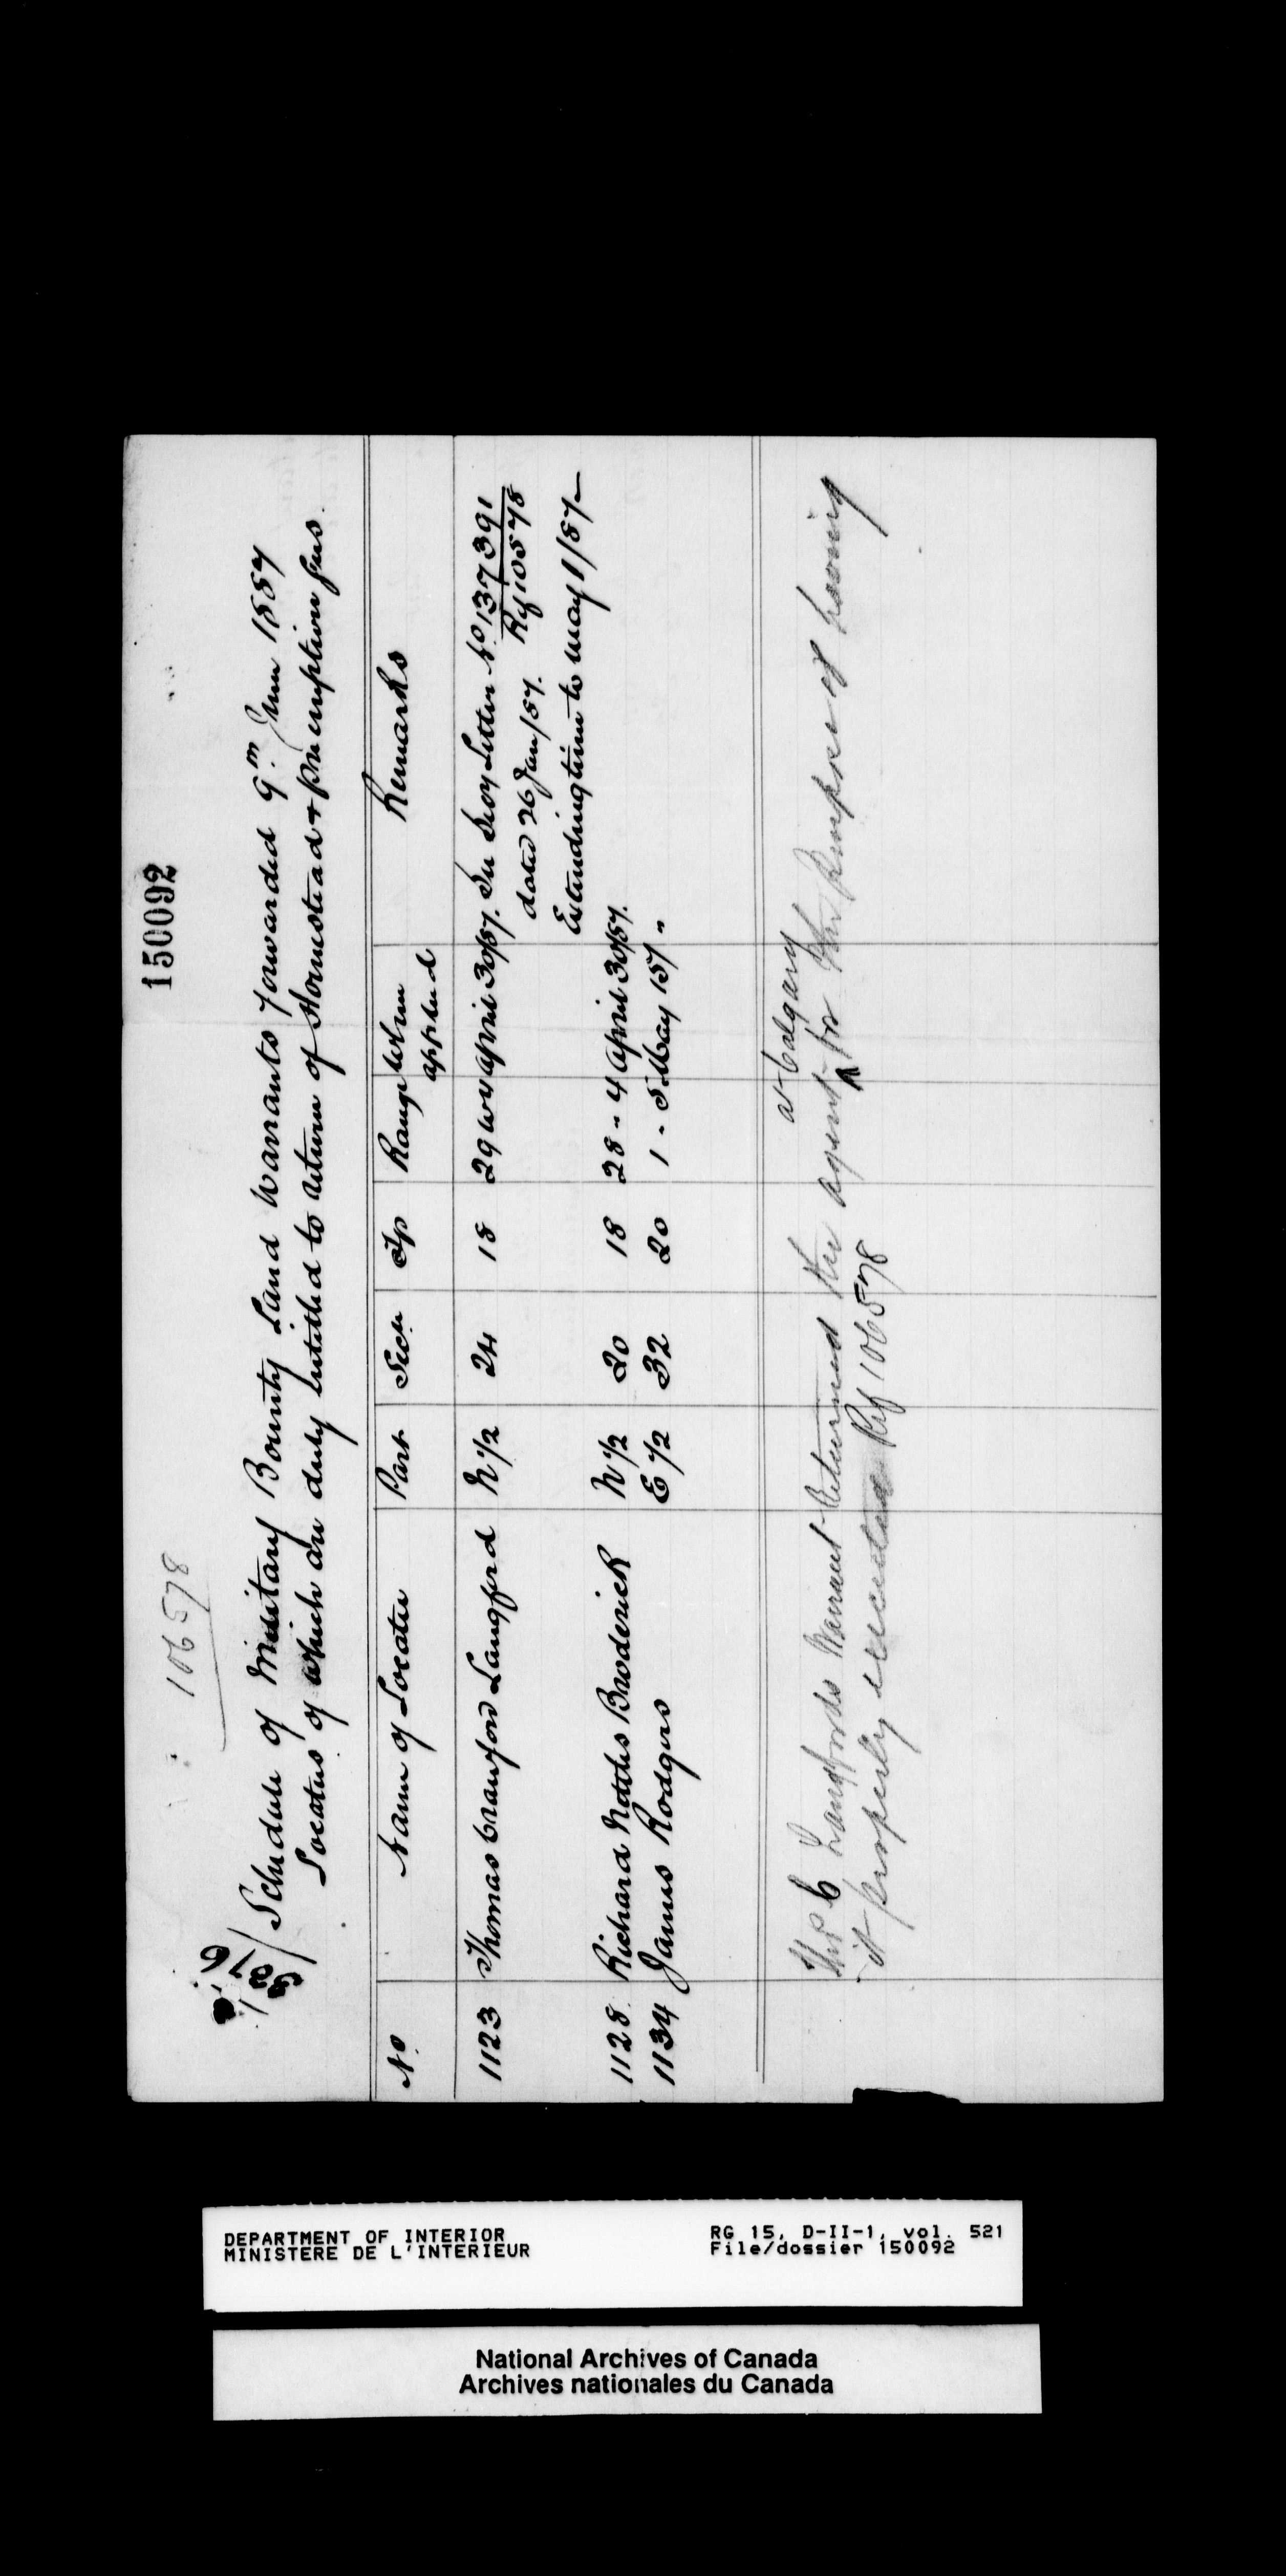 150092
106578
Schedule of Military Bounty Land Warrants forwarded 9th June 1887
Locatees of which are duly entitled to return of Homestead & Pre emption fees.
No. Name of Locatee Part Secn Tp Range When applied Remarks
1123 Thomas Crawford Langford N 1/2 24 18 29 W 4 April 30/87. See Secy Letter No 137391
dated 26 Jan/87. Rf 106578
Extending time to May 1/87 —
1128. Richard Nettles Broderick N 1/2 20 18 28 " 4 April 30/87.
1134 James Rodgers E 1/2 32 20 1 " 5 May 15/ "
at Calgary
Langfords Warrant Returned the agent for the purpose of having
it properly executed Ref 106578
DEPARTMENT OF INTERIOR
MINISTERE DE L'INTERIEUR
RG 15, D-II-1, vol. 521
File/dossier 150092
National Archives of Canada
Archives nationales du Canada